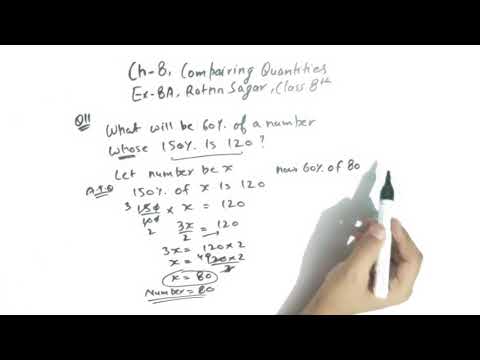 Ch-8, Comparing Quantities
Ex-8A, Ratna Sagar, Class 8th
Q11 What will be 60% of a number
whose 150% is 120?
Let number be x
A.T.Q 150% of x is 120
3 150/100 2 × x = 120
3x/2 = 120
3x = 120×2
x = 40 120×2/3
x = 80
Number = 80
now 60% of 80